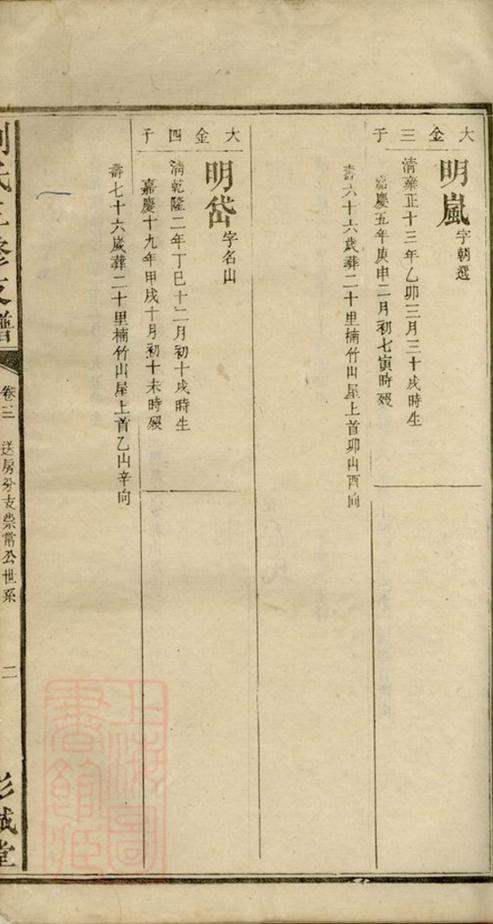 大金三子
明嵐字朝選
清雍正十三年乙卯三月三十戌時生
嘉慶五年庚申二月初七寅時歿
壽六十六歲葬二十里楠竹山屋上首卯山酉向
大金四子
明岱字名山
清乾隆二年丁巳十二月初十戌時生
嘉慶十九年甲戌十月初十未時歿
壽七十六歲葬二十里楠竹山屋上首乙山辛向
劉氏三修支譜
卷三
送房分支崇常公世系
二
彭城堂
上海圖書館